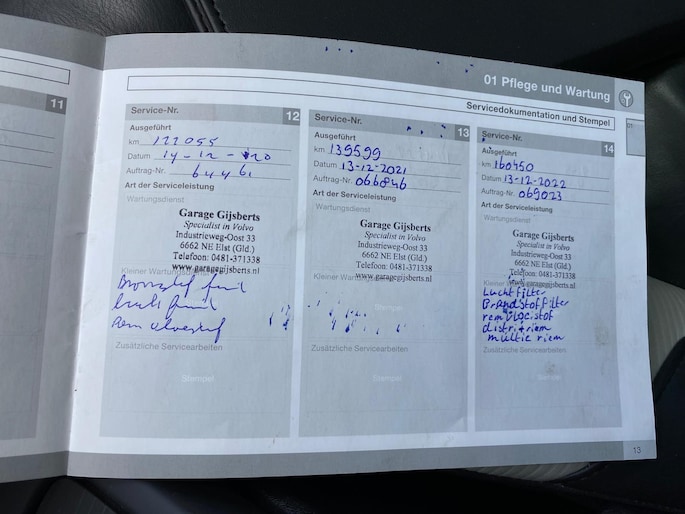 01 Pflege und Wartung
Servicedokumentation und Stempel
11
Service-Nr. 12
Ausgeführt
km 122055
Datum 14-12-2020
Auftrag-Nr. 64461
Art der Serviceleistung
Wartungsdienst
Garage Gijsberts
Specialist in Volvo
Industrieweg-Oost 33
6662 NE Elst (Gld.)
Telefoon: 0481-371338
www.garagegijsberts.nl
Kleiner Wartungsdienst
Zusätzliche Servicearbeiten
Stempel
Service-Nr. 13
Ausgeführt
km 139599
Datum 13-12-2021
Auftrag-Nr. 066846
Art der Serviceleistung
Wartungsdienst
Garage Gijsberts
Specialist in Volvo
Industrieweg-Oost 33
6662 NE Elst (Gld.)
Telefoon: 0481-371338
www.garagegijsberts.nl
Stempel
Zusätzliche Servicearbeiten
Stempel
Service-Nr. 14
Ausgeführt
km 160450
Datum 13-12-2022
Auftrag-Nr. 069023
Art der Serviceleistung
Wartungsdienst
Garage Gijsberts
Specialist in Volvo
Industrieweg-Oost 33
6662 NE Elst (Gld.)
Telefoon: 0481-371338
Luchtfilter
Brandstoffilter
remvloeistof
distririem
multieriem
Zusätzliche Servicearbeiten
Stempel
13